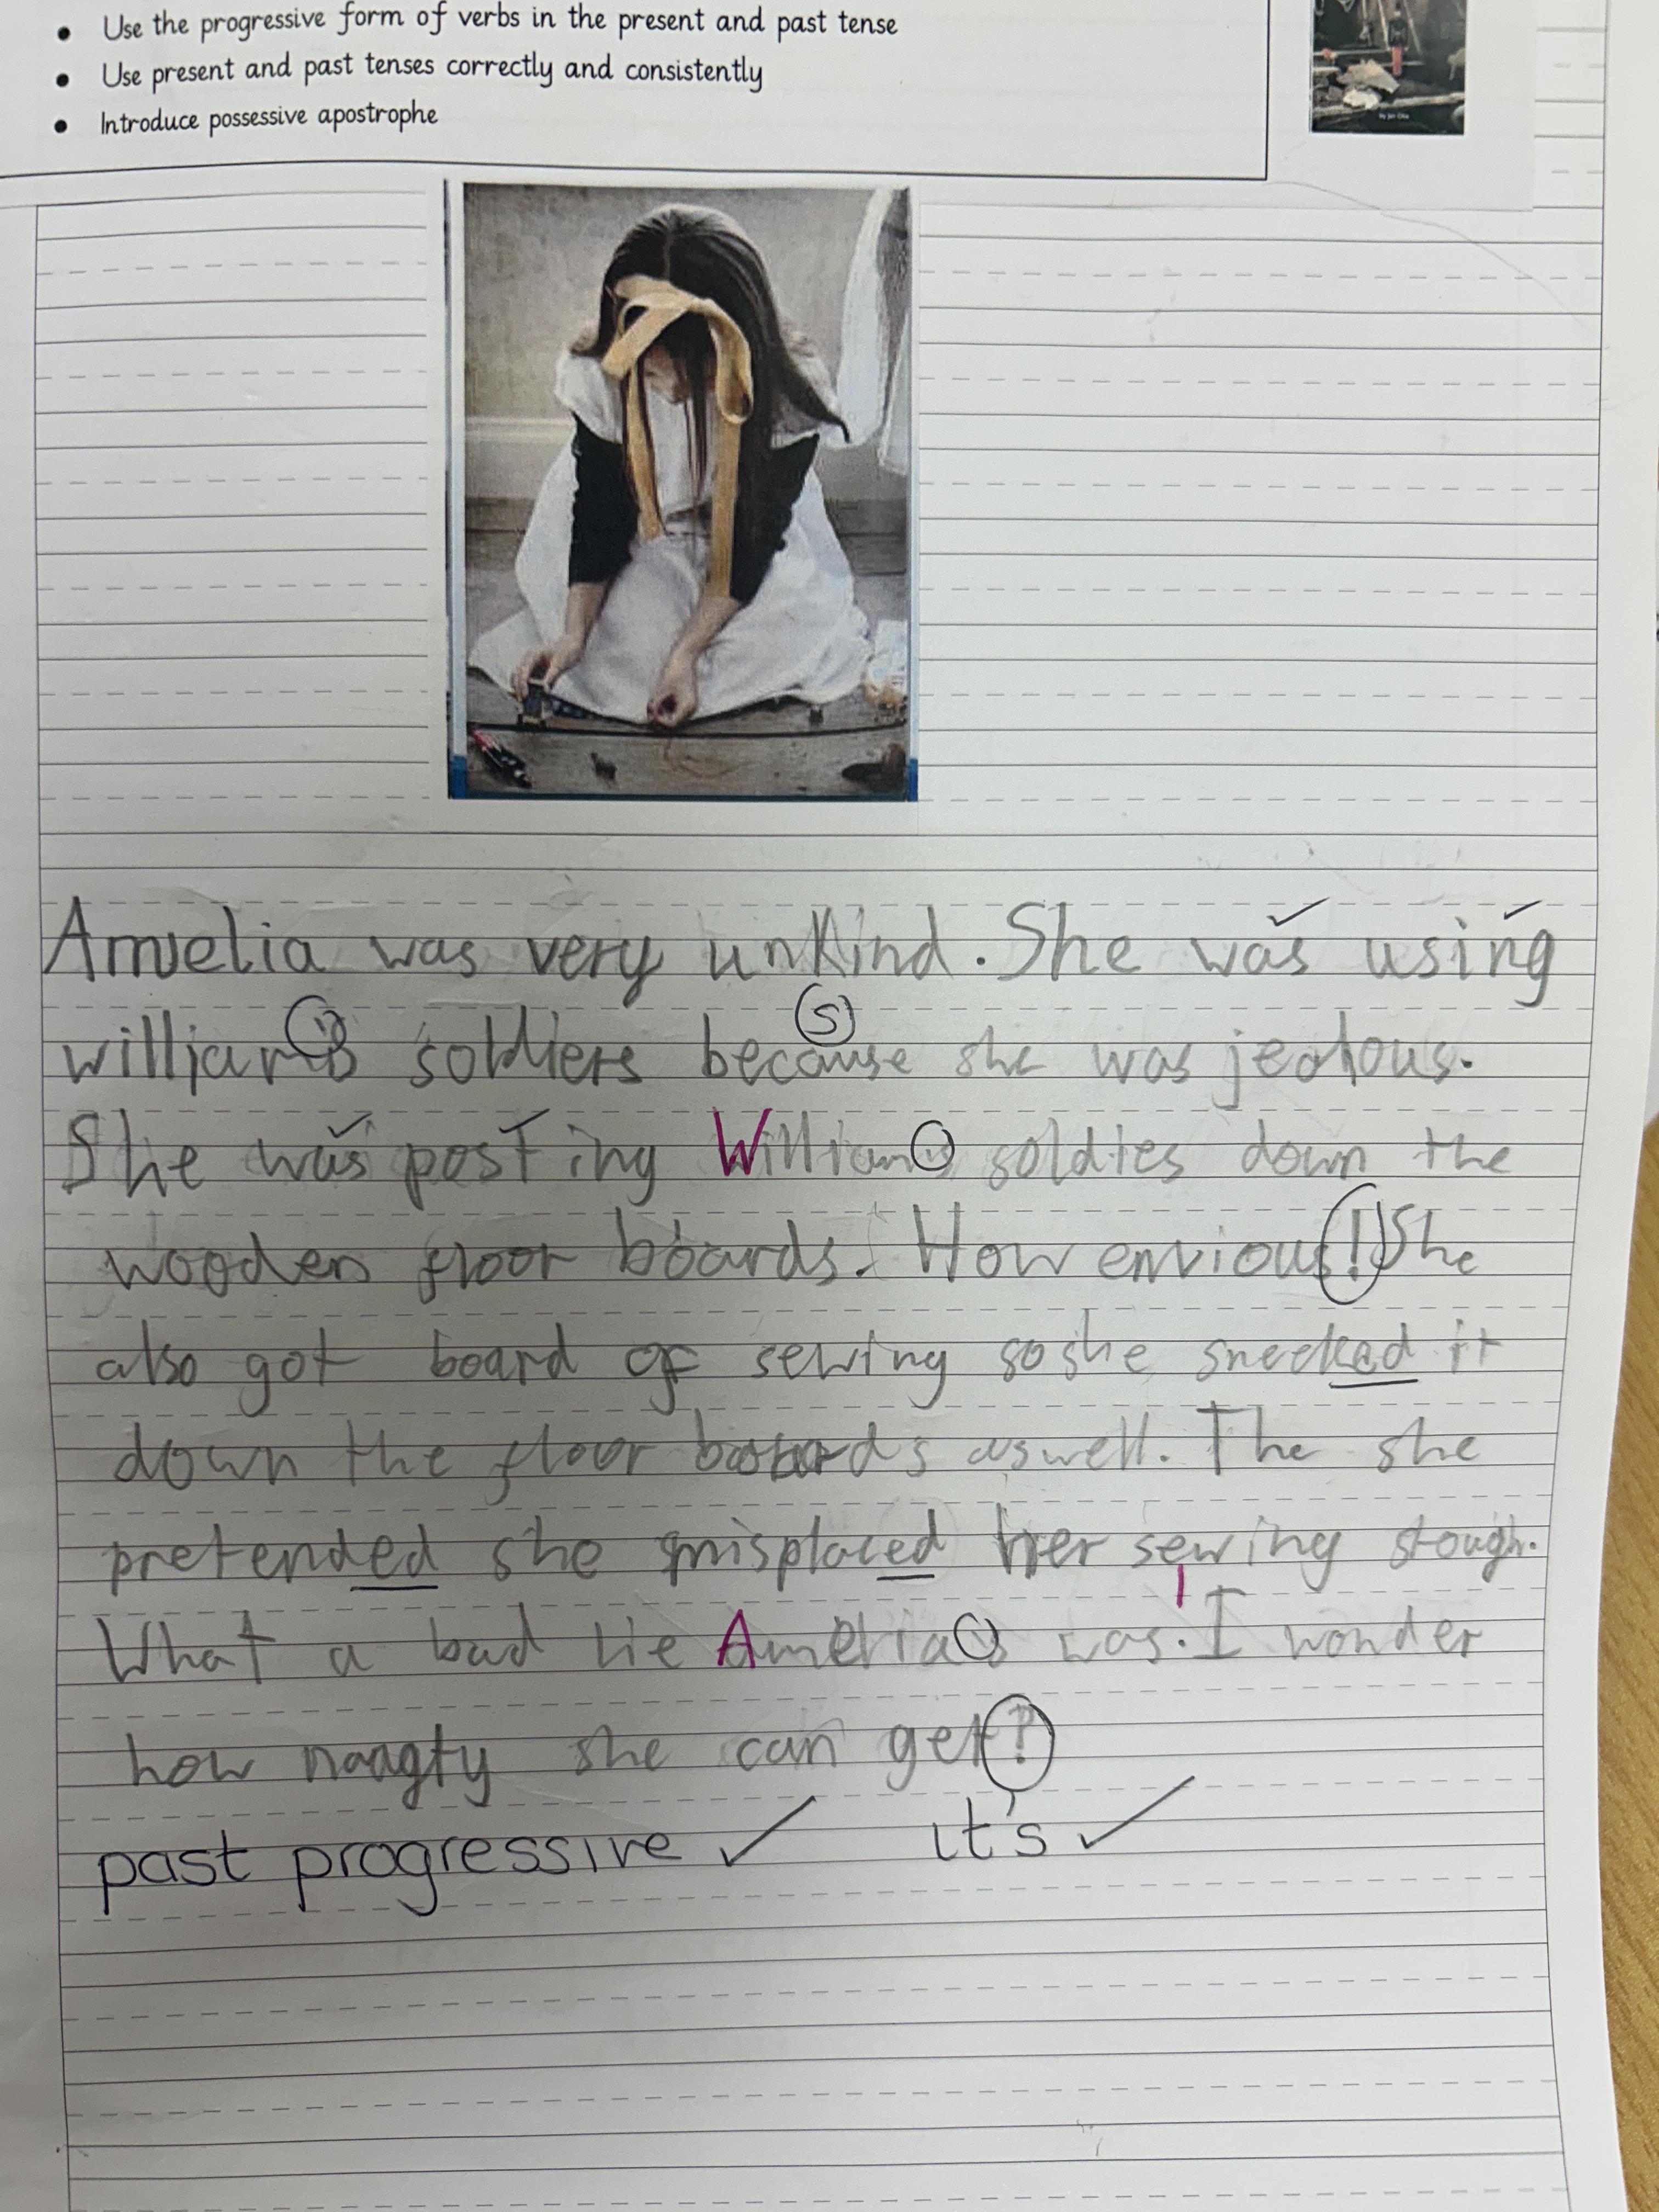 Use the progressive form of verbs in the present and past tense
Use present and past tenses correctly and consistently
Introduce possessive apostrophe
Amelia was very unkind. She was using
S
william's soldiers because she was jealous.
She was posting William's soldies down the
wooden floor boards. How envious! She
also got board of sewing so she sneeked it
down the floor boards aswell. The she
pretended she misplaced her sewing stough.
What a bad lie Amelia's was. I wonder
how naagty she can get?
past progressive ✓ it's ✓